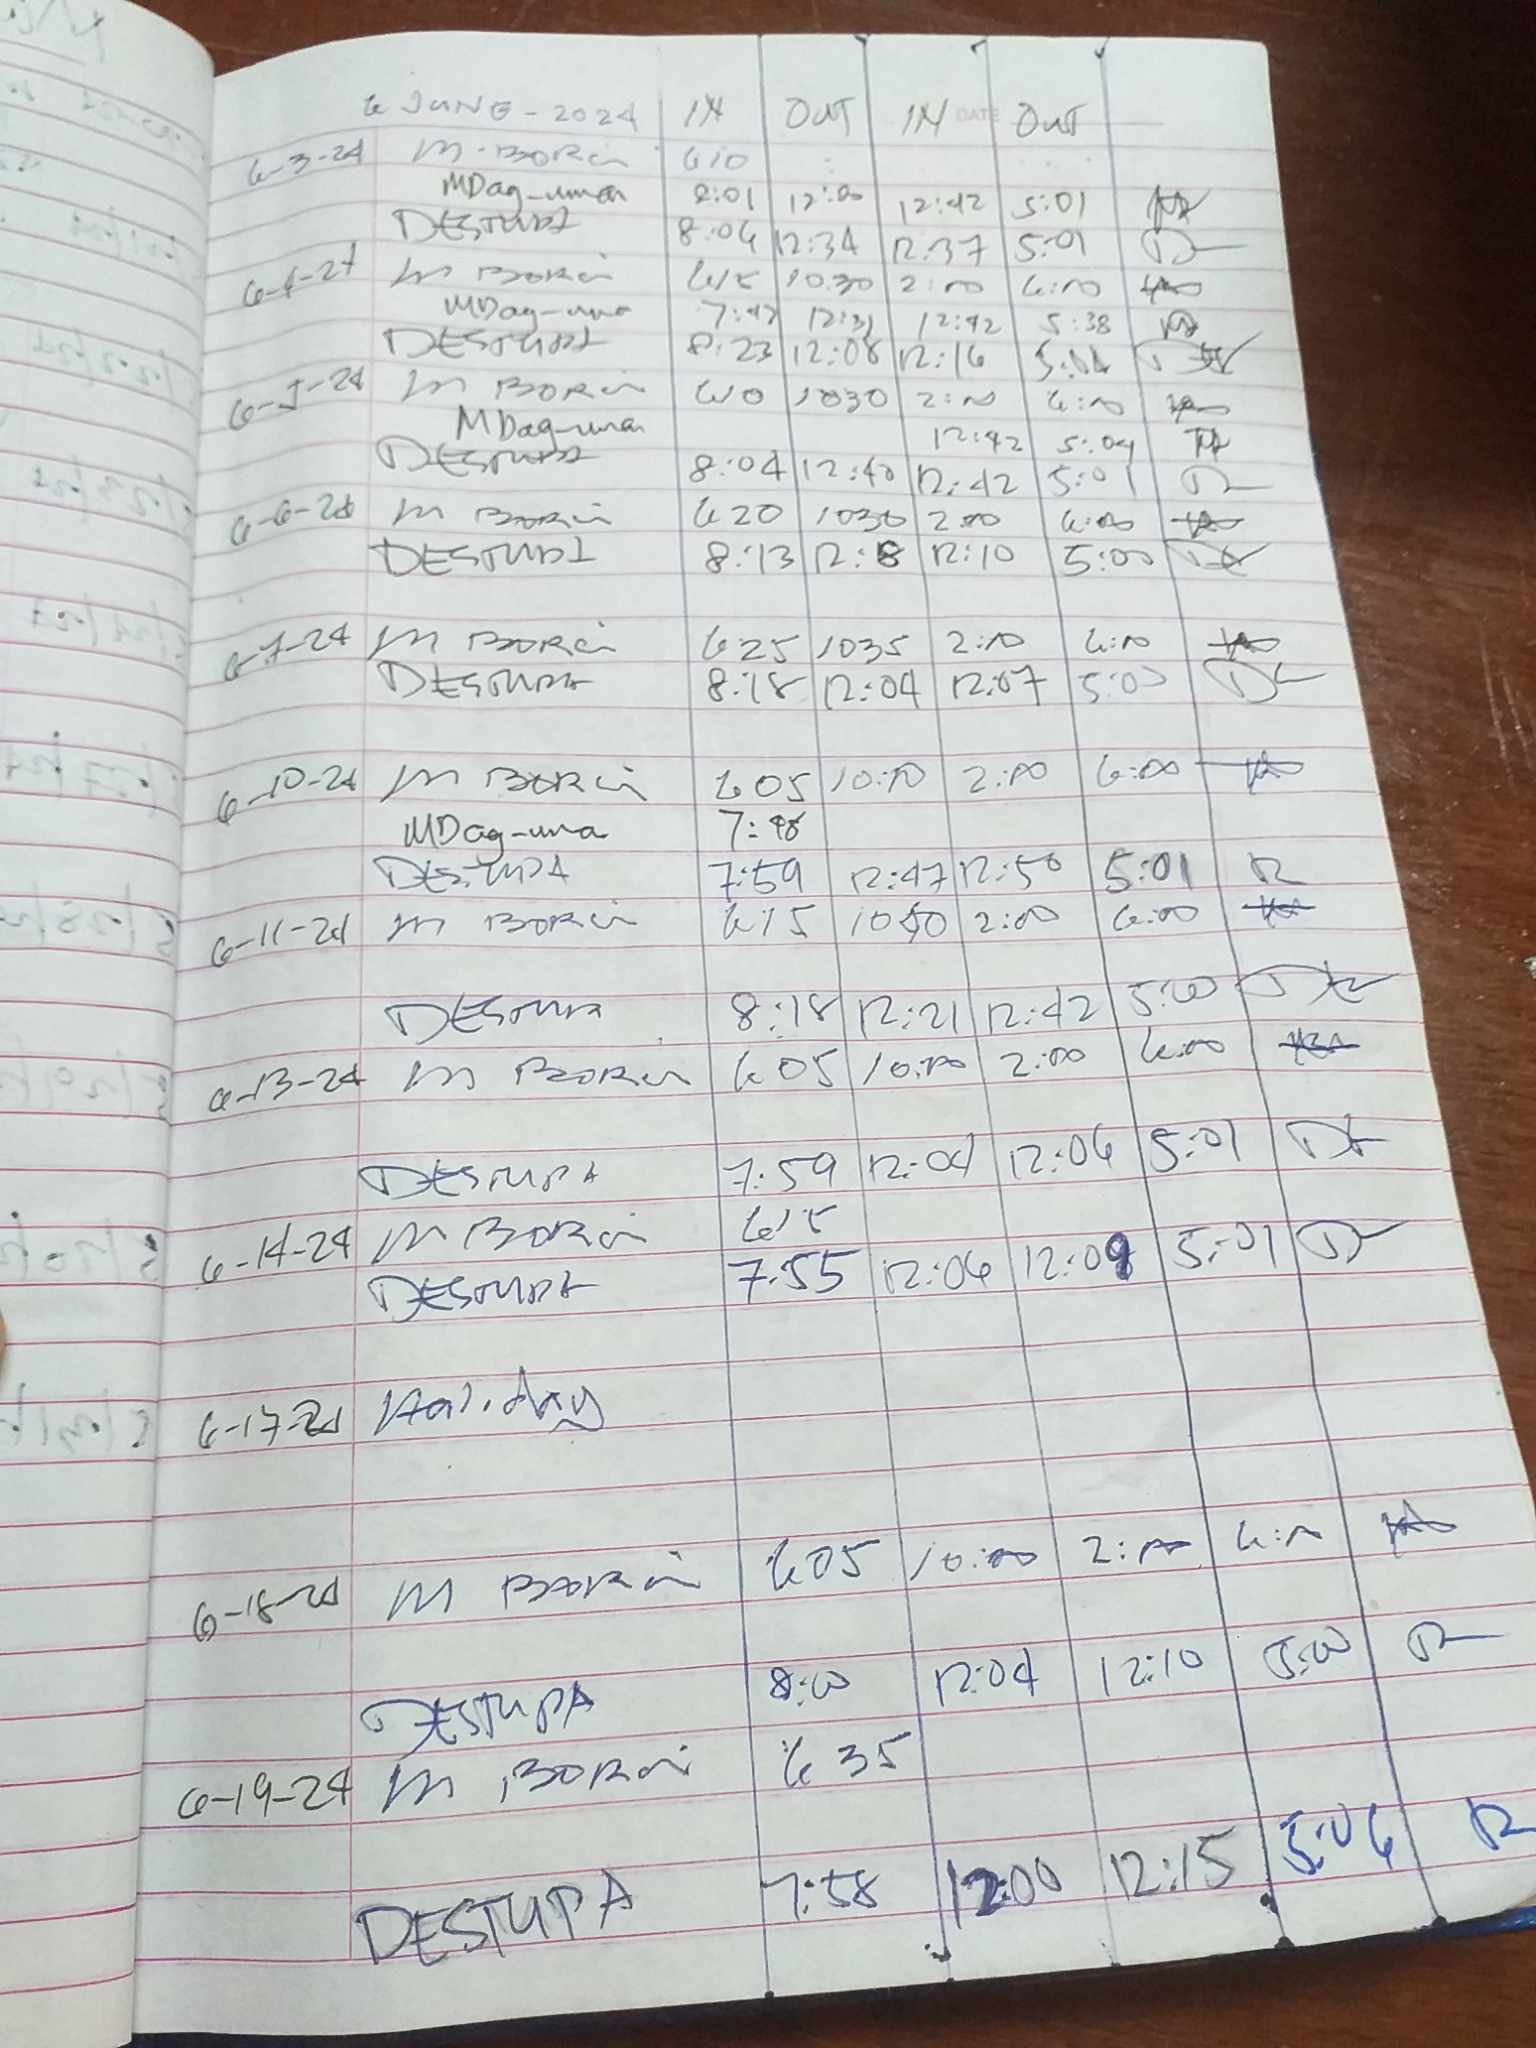 6 JUNE - 2024 IN OUT IN OUT
DATE
6-3-24 M. BORCi 610
MDag-uman 8:01 12:00 12:42 5:01
DESTUPA 8:04 12:34 12:37 5:01
6-4-24 M BORCi 615 10:30 2:00 6:00
MDag-uma 7:47 12:31 12:42 5:38
DESTUPA 8:23 12:08 12:16 5:04
6-5-24 M BORCi 610 1030 2:00 6:00
MDag-uman 12:42 5:04
DESTUPA 8:04 12:40 12:42 5:01
6-6-24 M BORCi 620 1030 2:00 6:00
DESTUPA 8:13 12:8 12:10 5:00
6-7-24 M BORCi 625 1035 2:00 6:00
DESTUPA 8:18 12:04 12:07 5:00
6-10-24 M BORCi 605 10:00 2:00 6:00
MDag-uma 7:48
DESTUPA 7:59 12:47 12:50 5:01
6-11-24 M BORCi 615 1000 2:00 6:00
DESTUPA 8:18 12:21 12:42 5:00
6-13-24 M BORCi 605 10:00 2:00 6:00
DESTUPA 7:59 12:04 12:06 5:01
6-14-24 M BORCi 615
DESTUPA 7:55 12:06 12:09 5:01
6-17-24 Holiday
6-18-24 M BORCi 605 10:00 2:00 6:00
DESTUPA 8:00 12:04 12:10 5:00
6-19-24 M BORCi 635
DESTUPA 7:58 12:00 12:15 5:06